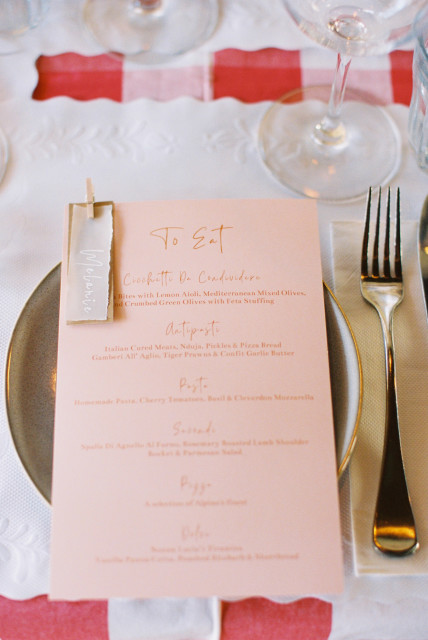 To Eat
Melanie
Cicchetti Da Condividere
Bites with Lemon Aioli, Mediterranean Mixed Olives,
Crumbed Green Olives with Feta Stuffing
Antipasti
Italian Cured Meats, Nduja, Pickles & Pizza Bread
Gamberi All' Aglio, Tiger Prawns & Confit Garlic Butter
Pasta
Homemade Pasta, Cherry Tomatoes, Basil & Mozzarella
Secondi
Spalla Di Agnello Al Forno, Rosemary Roasted Lamb Shoulder
Rocket & Parmesan Salad
Pizza
A selection of Finest
Dolce
Tiramisu
Vanilla Panna Cotta, Rhubarb & Shortbread